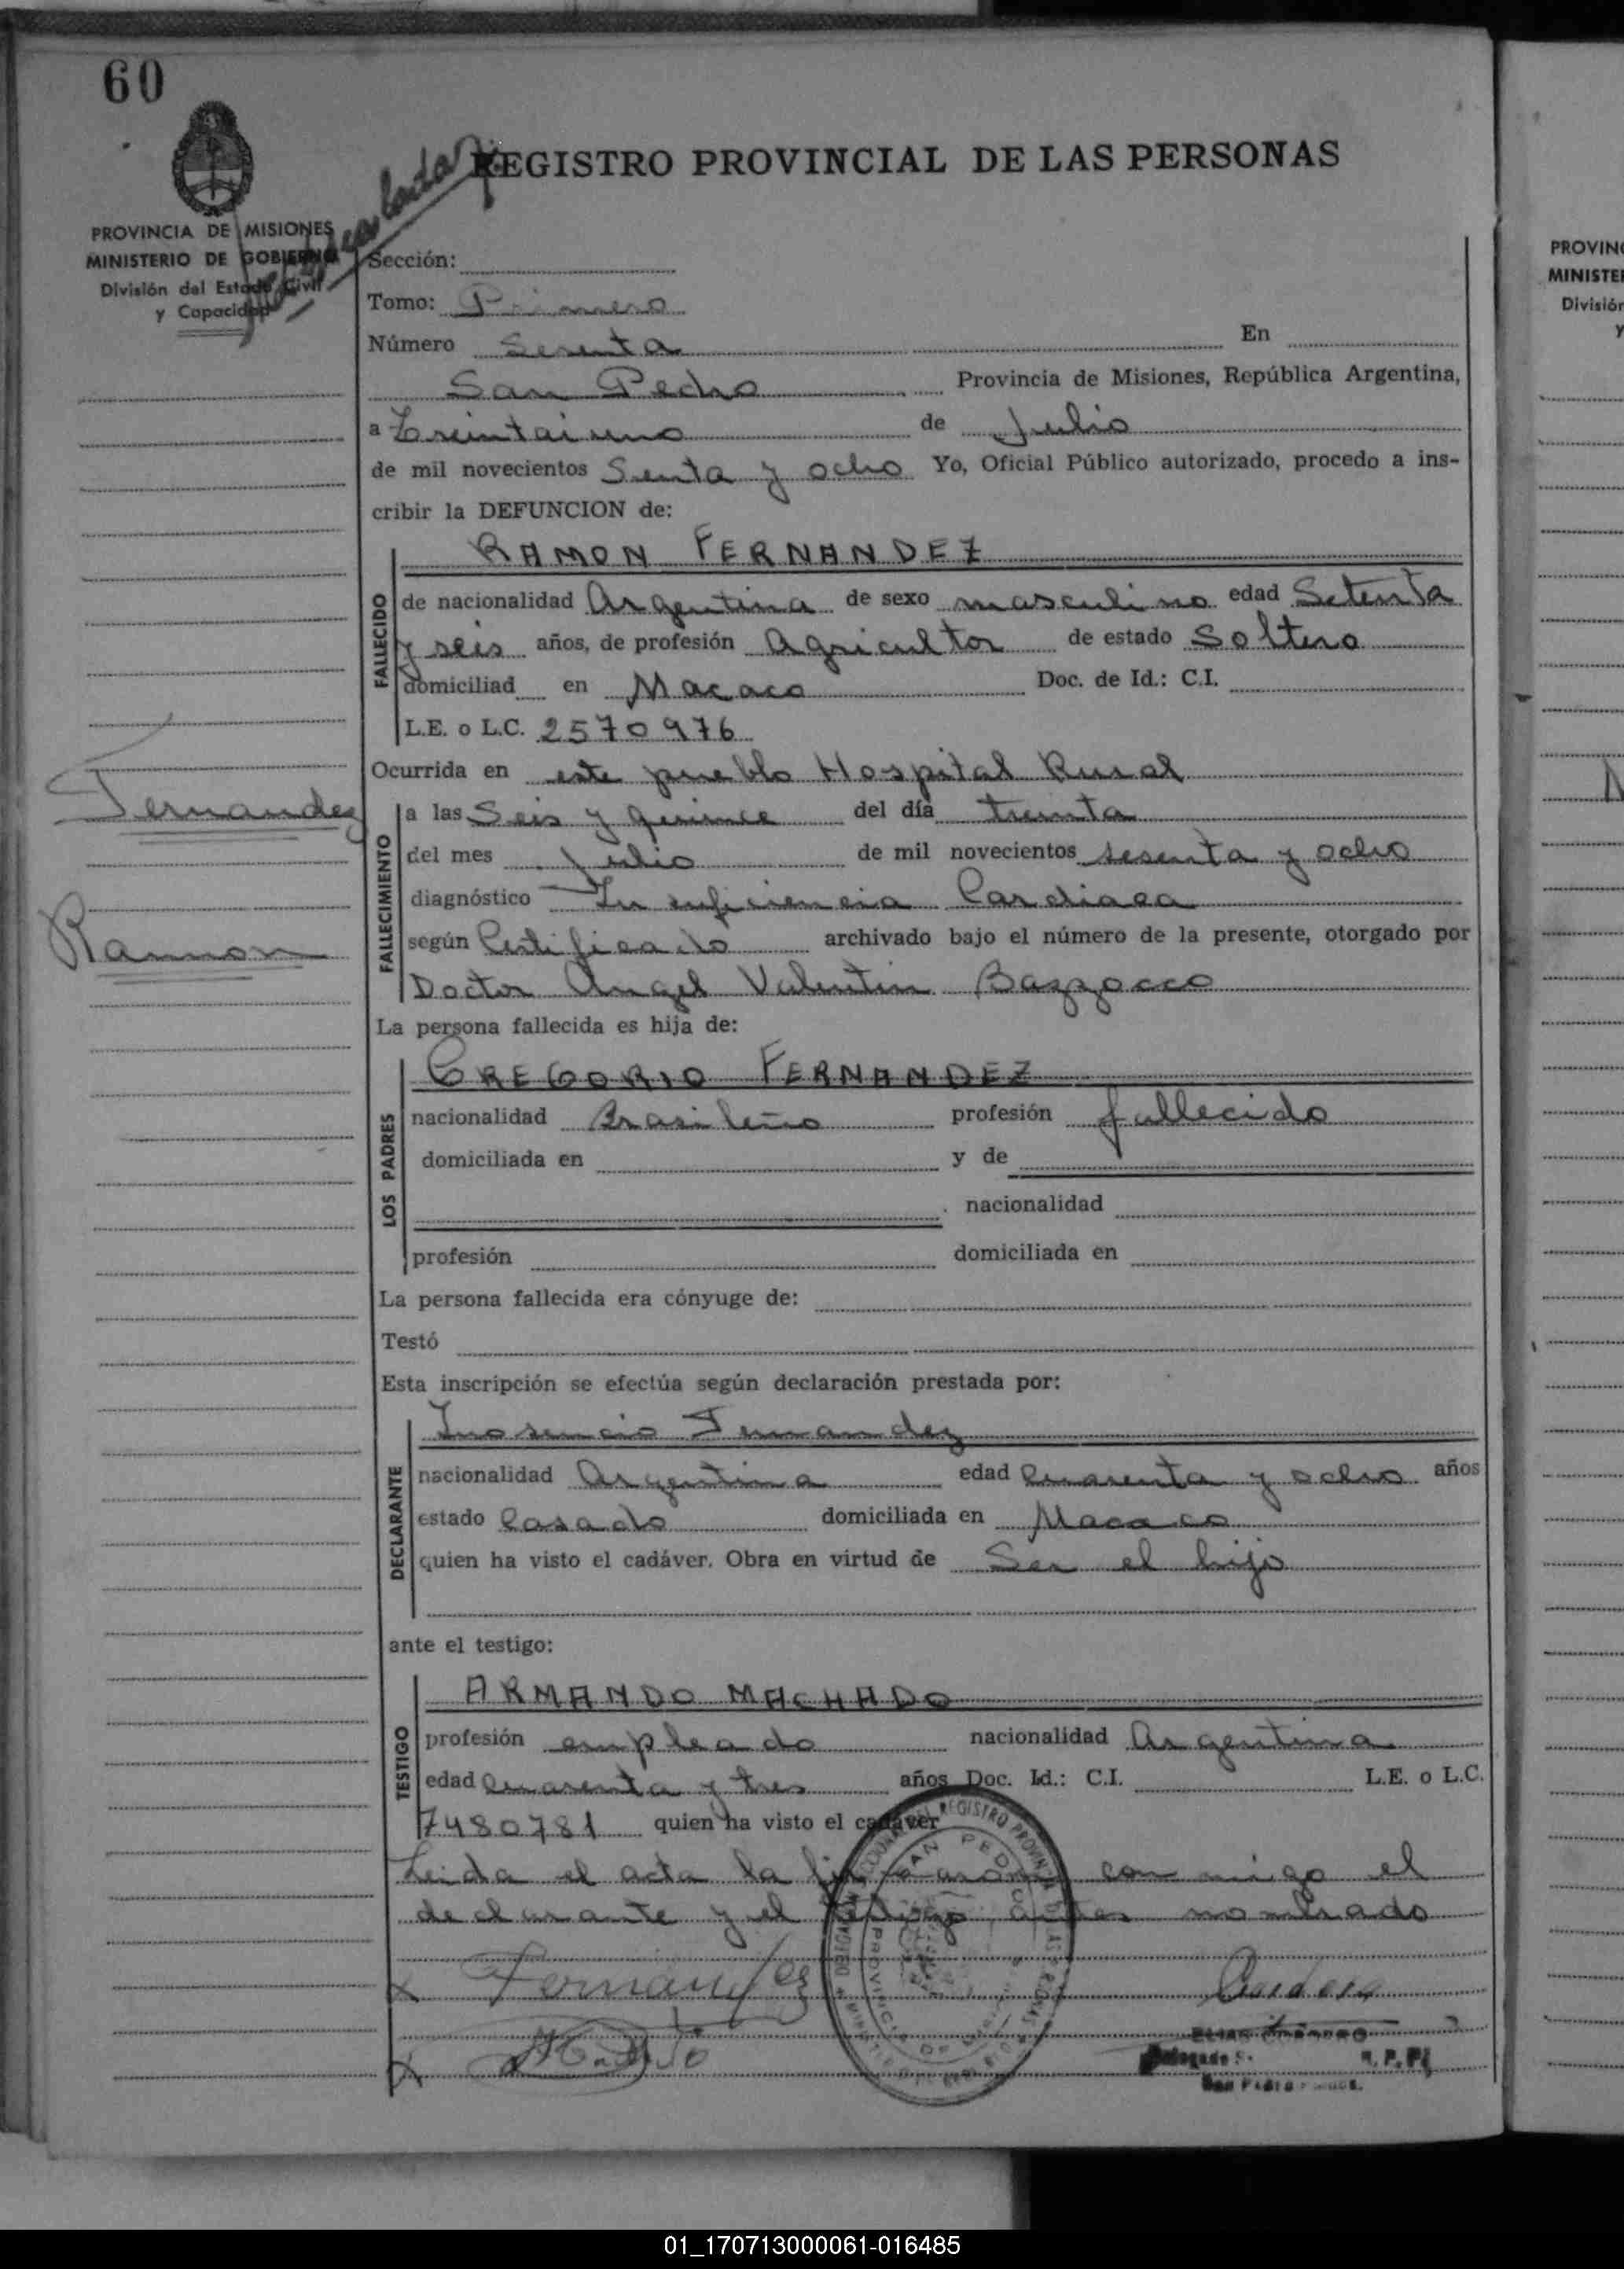 60
REGISTRO PROVINCIAL DE LAS PERSONAS
PROVINCIA DE MISIONES
MINISTERIO DE GOBIERNO
División del Estado Civil
y Capacidad
Sección:
Tomo: Primero
Número Sesenta En
San Pedro Provincia de Misiones, República Argentina,
a Treintaiuno de Julio
de mil novecientos Senta y ocho Yo, Oficial Público autorizado, procedo a ins-
cribir la DEFUNCION de:
RAMON FERNANDEZ
FALLECIDO
de nacionalidad Argentina de sexo masculino edad Setenta
y seis años, de profesión Agricultor de estado Soltero
domiciliad en Macaco Doc. de Id.: C.I.
L.E. o L.C. 2570976
Ocurrida en este pueblo Hospital Rural
Fernandez
Ramon
FALLECIMIENTO
a las Seis y quince del día treinta
del mes Julio de mil novecientos sesenta y ocho
diagnóstico Insuficiencia Cardiaca
según Certificado archivado bajo el número de la presente, otorgado por
Doctor Angel Valentin Bazzocco
La persona fallecida es hija de:
LOS PADRES
GREGORIO FERNANDEZ
nacionalidad Brasileño profesión fallecido
domiciliada en y de
nacionalidad
profesión domiciliada en
La persona fallecida era cónyuge de:
Testó
Esta inscripción se efectúa según declaración prestada por:
DECLARANTE
Inosencio Fernandez
nacionalidad Argentina edad Cuarenta y ocho años
estado Casado domiciliada en Macaco
quien ha visto el cadáver. Obra en virtud de Ser el hijo
ante el testigo:
TESTIGO
ARMANDO MACHADO
profesión empleado nacionalidad Argentina
edad Cuarenta y tres años Doc. Id.: C.I. L.E. o L.C.
7480781 quien ha visto el cadáver
Leida el acta la firmaron con migo el
declarante y el testigo antes nombrado
Fernandez
SAN PEDRO
PROVINCIA DE
PROVIN
MINISTE
División
y
01_170713000061-016485